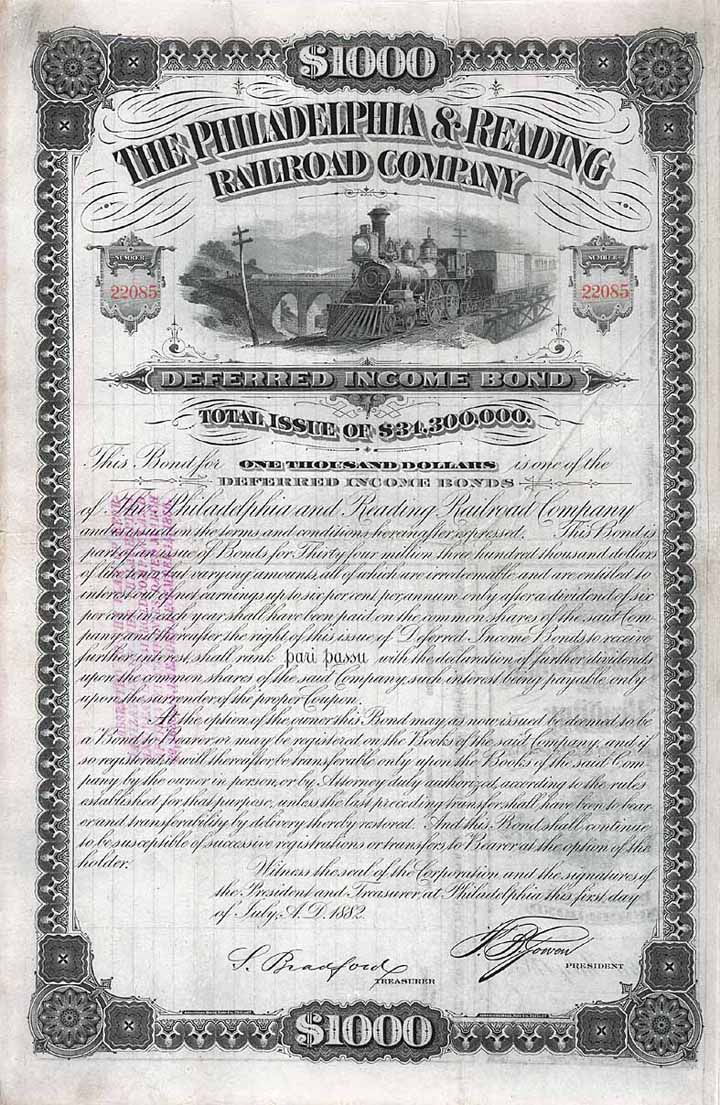 $1000
THE PHILADELPHIA & READING
RAILROAD COMPANY
NUMBER
22085
NUMBER
22085
DEFERRED INCOME BOND
TOTAL ISSUE OF $34,300,000.
This Bond for ONE THOUSAND DOLLARS is one of the
DEFERRED INCOME BONDS
of The Philadelphia and Reading Railroad Company
and is issued on the terms and conditions hereinafter expressed. This Bond is
part of an issue of Bonds for Thirty four million three hundred thousand dollars
of like tenor but varying amounts, all of which are irredeemable and are entitled to
interest out of net earnings up to six per cent. per annum only after a dividend of six
per cent. in each year shall have been paid on the common shares of the said Com-
pany and thereafter the right of this issue of Deferred Income Bonds to receive
further interest shall rank pari passu with the declaration of further dividends
upon the common shares of the said Company, such interest being payable only
upon the surrender of the proper Coupon.
At the option of the owner this Bond may as now issued be deemed to be
a Bond to Bearer or may be registered on the Books of the said Company, and if
so registered it will thereafter be transferable only upon the Books of the said Com-
pany by the owner in person, or by Attorney duly authorized, according to the rules
established for that purpose, unless the last preceding transfer shall have been to bear-
er and transferability by delivery thereby restored. And this Bond shall continue
to be susceptible of successive registrations or transfers to Bearer at the option of the
holder.
Witness the seal of the Corporation and the signatures of
the President and Treasurer, at Philadelphia this first day
of July, A.D. 1882.
S. Bradford
TREASURER
F B Gowen
PRESIDENT
$1000